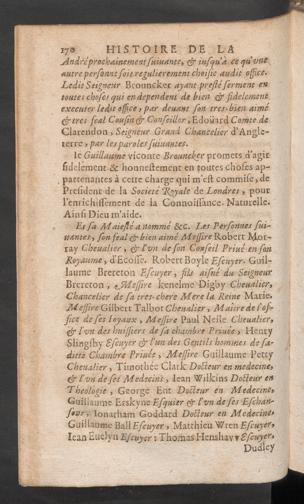 170 HISTOIRE DE LA
André prochainement suiuante, & iusqu'à ce qu'vne
autre personne soit regulierement choisie audit office.
Ledit Seigneur Brouncker ayant presté serment en
toutes choses qui en dependent de bien & fidelement
executer ledit office, par deuant son tres-bien aimé
& tres feal Cousin & Conseiller, Edoüard Comte de
Clarendon, Seigneur Grand Chancelier d'Angle-
terre, par les paroles suiuantes.
Ie Guillaume viconte Brouncker promets d'agir
fidelement & honnestement en toutes choses ap-
partenantes à cette charge qui m'est commise, de
President de la Societé Royale de Londres, pour
l'enrichissement de la Connoissance. Naturelle.
Ainsi Dieu m'aide.
Et sa Maiesté a nommé &c. Les Personnes sui-
uantes, son feal & bien aimé Messire Robert Mor-
ray Cheualier, & l'vn de son Conseil Priué en son
Royaume, d'Ecosse. Robert Boyle Escuyer. Guil-
laume Brereton Escuyer, fils aisné du Seigneur
Brereton, Messire Kenelme Digby Cheualier,
Chancelier de sa tres-chere Mere la Reine Marie.
Messire Gilbert Talbot Cheualier, Maitre de l'of-
fice de ses Ioyaux, Messire Paul Neslle Cheualier,
& l'vn des huissiers de sa chambre Priuée, Henry
Slingsby Escuyer & l'vn des Gentils hommes de sa-
ditte Chambre Priuée, Messire Guillaume Petty
Cheualier, Timothée Clark Docteur en medecine,
& l'vn de ses Medecins, Iean Wilkins Docteur en
Theologie, George Ent Docteur en Medecine,
Guillaume Erskyne Esquier & l'vn de ses Eschan-
sons, Ionatham Goddard Docteur en Medecine,
Guillaume Ball Escuyer, Matthieu Wren Escuyer,
Iean Euelyn Escuyer: Thomas Henshavv Escuyer,
Dudley